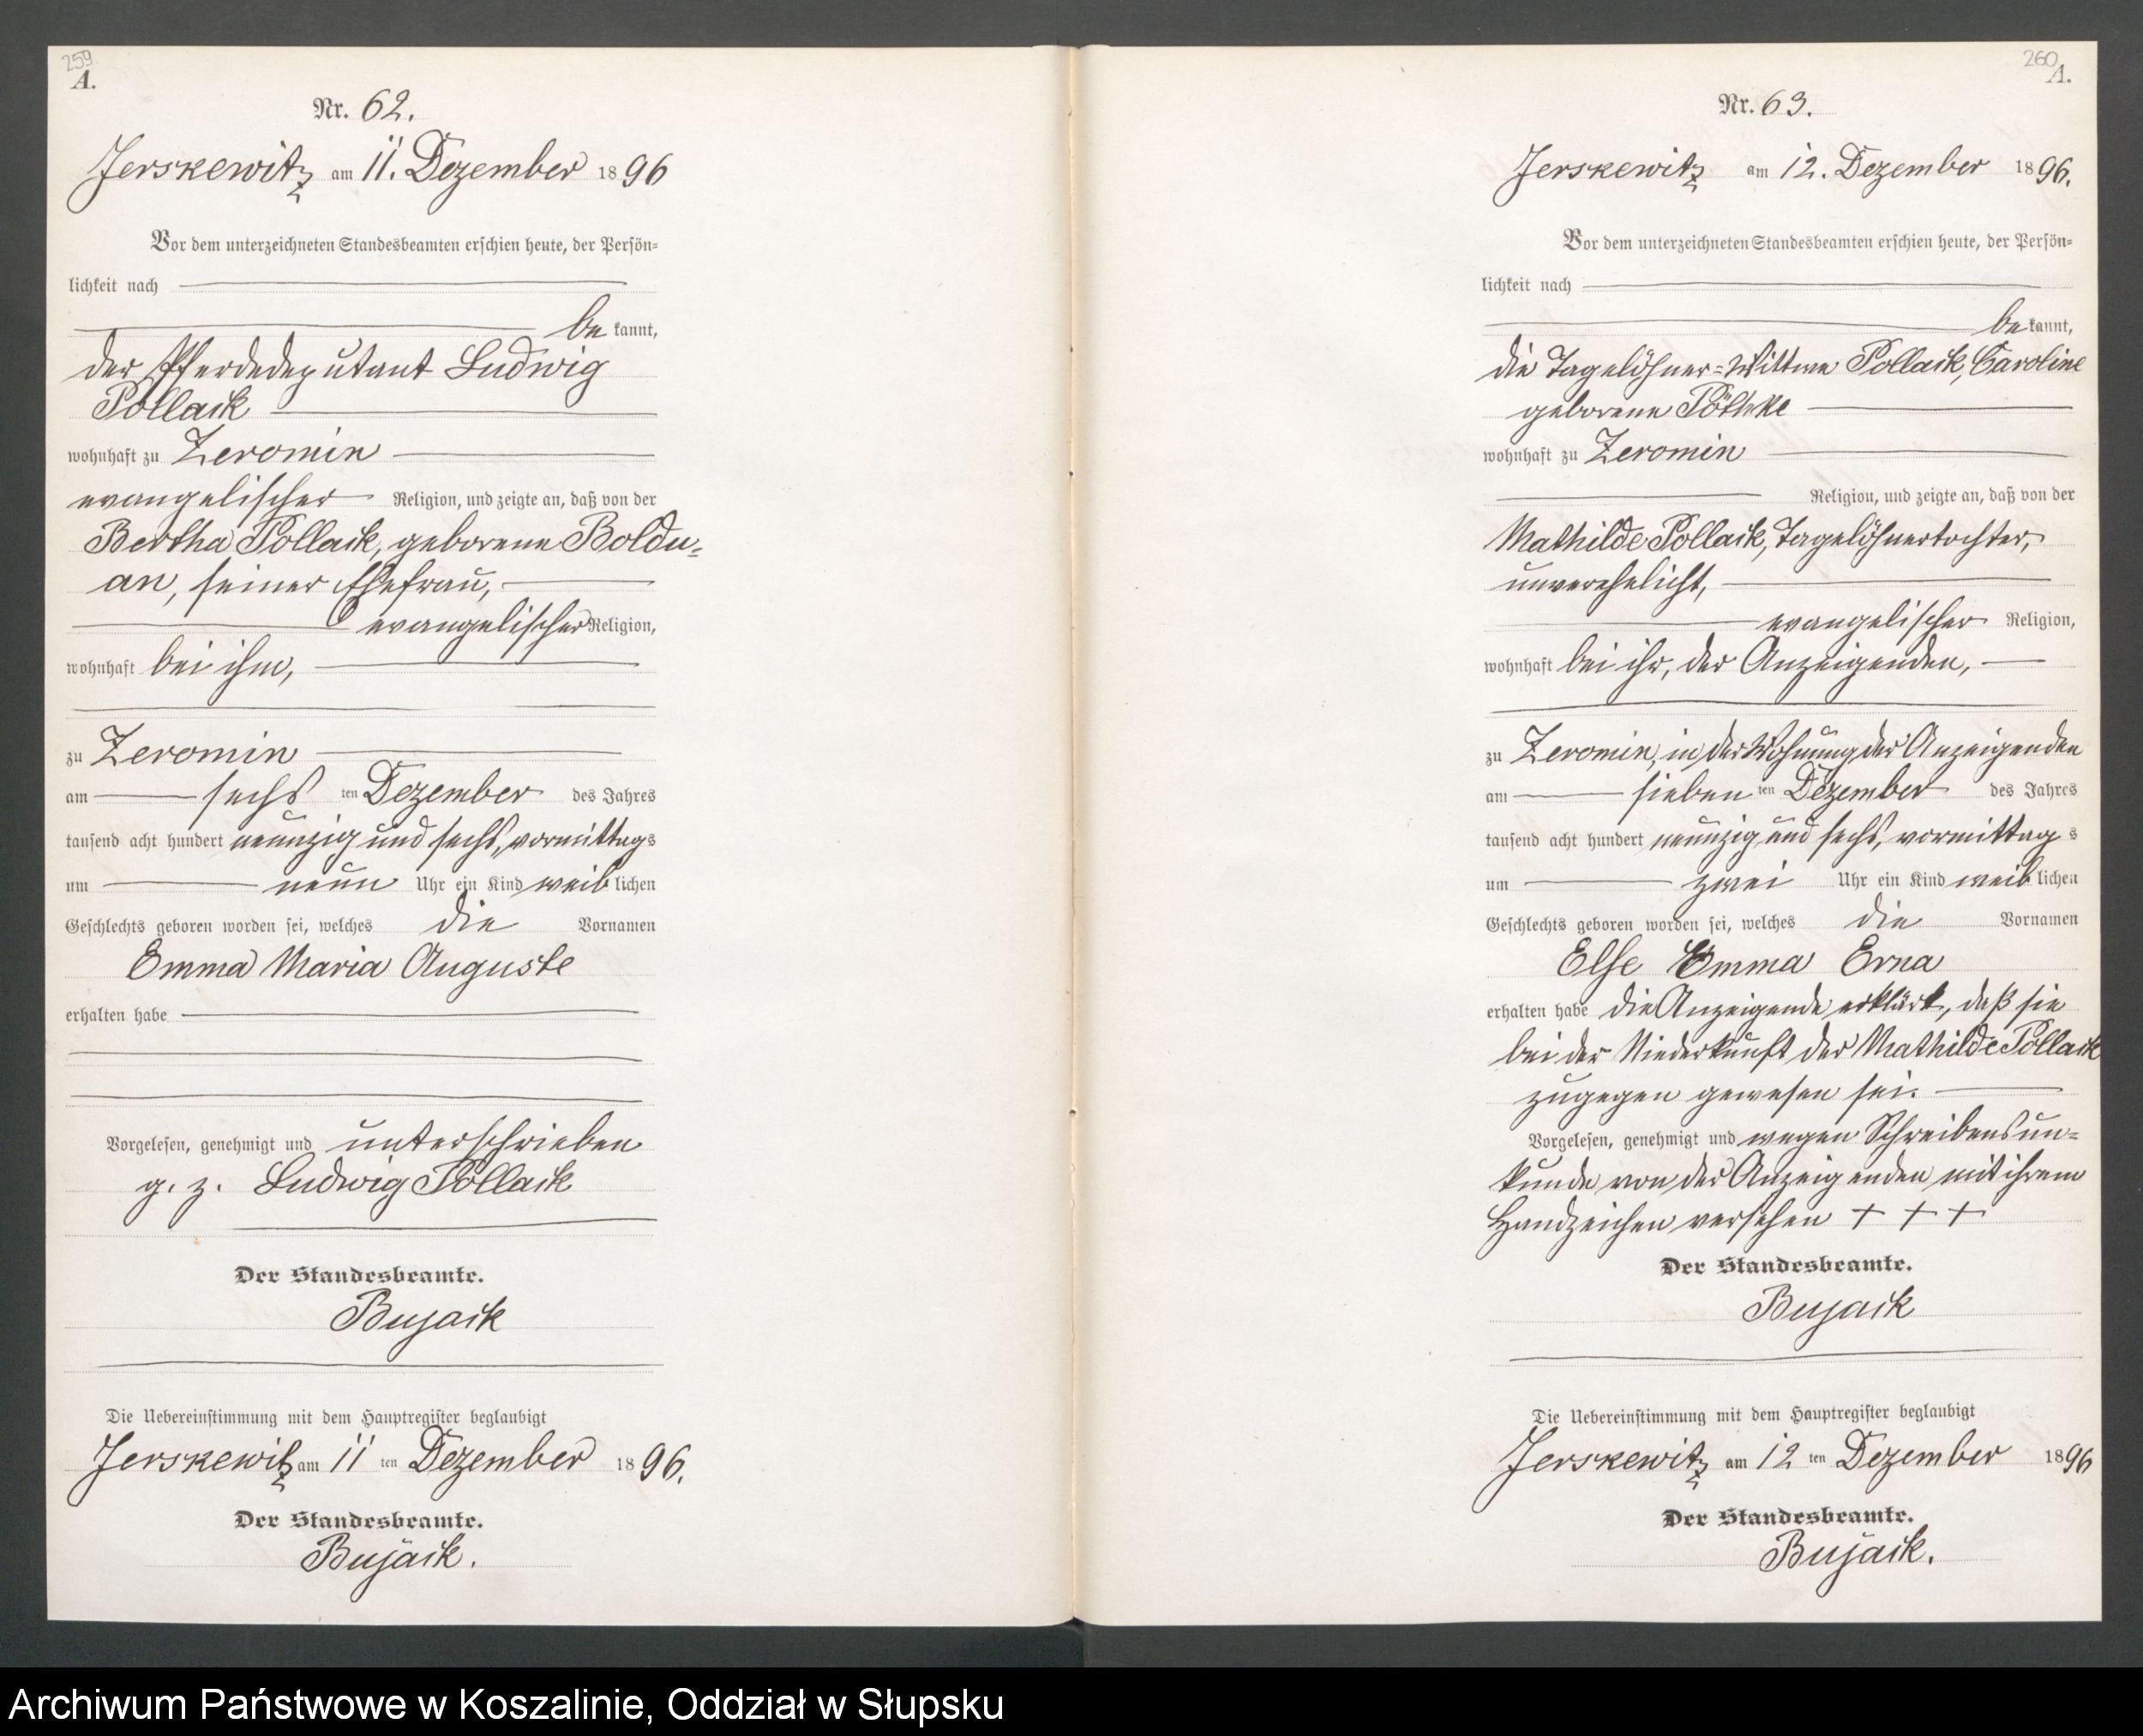 259
A.
Nr. 62.
Jerskewitz am 11. Dezember 1896
Vor dem unterzeichneten Standesbeamten erschien heute, der Persön=
lichkeit nach
be kannt,
der Pferdedeputant Ludwig
Pollack
wohnhaft zu Zeromin
evangelischer Religion, und zeigte an, daß von der
Bertha Pollack, geborene Boldu=
an, seiner Ehefrau,
evangelischer Religion,
wohnhaft bei ihm,
zu Zeromin
am sechs ten Dezember des Jahres
tausend acht hundert neunzig und sechs, vormittags
um neun Uhr ein Kind weiblichen
Geschlechts geboren worden sei, welches die Vornamen
Emma Maria Auguste
erhalten habe
Vorgelesen, genehmigt und unterschrieben
g. z. Ludwig Pollack
Der Standesbeamte.
Bujack
Die Uebereinstimmung mit dem Hauptregister beglaubigt
Jerskewitz am 11 ten Dezember 1896.
Der Standesbeamte.
Bujack.
260
A.
Nr. 63.
Jerskewitz am 12. Dezember 1896.
Vor dem unterzeichneten Standesbeamten erschien heute, der Persön=
lichkeit nach
be kannt,
die Tagelöhner=Wittwe Pollack, Caroline
geborene Pöthke
wohnhaft zu Zeromin
Religion, und zeigte an, daß von der
Mathilde Pollack, Tagelöhnertochter,
unverehelicht,
evangelischer Religion,
wohnhaft bei ihr, der Anzeigenden,
zu Zeromin, in der Wohnung der Anzeigenden
am sieben ten Dezember des Jahres
tausend acht hundert neunzig und sechs, vormittags
um zwei Uhr ein Kind weiblichen
Geschlechts geboren worden sei, welches die Vornamen
Else Emma Erna
erhalten habe die Anzeigende erklärt, daß sie
bei der Niederkunft der Mathilde Pollack
zugegen gewesen sei.
Vorgelesen, genehmigt und wegen Schreibensun=
kunde von der Anzeigenden mit ihrem
Handzeichen versehen + + +
Der Standesbeamte.
Bujack
Die Uebereinstimmung mit dem Hauptregister beglaubigt
Jerskewitz am 12 ten Dezember 1896
Der Standesbeamte.
Bujack.
Archiwum Państwowe w Koszalinie, Oddział w Słupsku